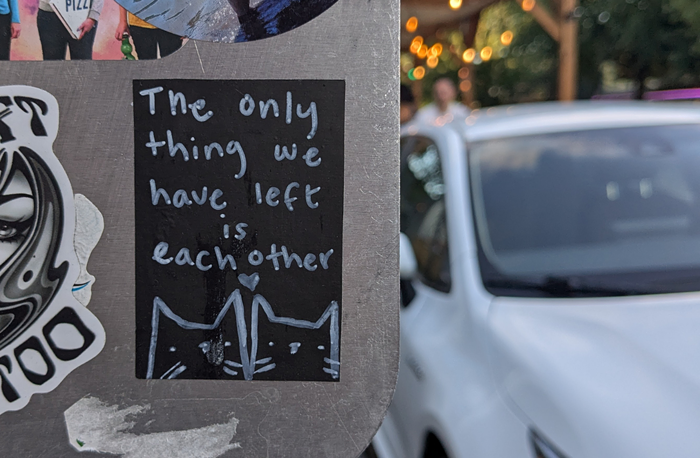 PIZZ
The only
thing we
have left
is
each other
TOO